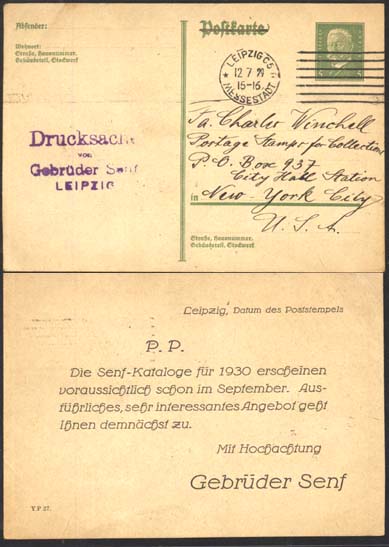 Absender:
Wohnort:
Straße, Hausnummer,
Gebäudeteil, Stockwerk
Postkarte
5 5
LEIPZIG C5
12.7.29
15-16
MESSESTADT
Drucksache
von
Gebrüder Senf
LEIPZIG
Fa. Charles Winchell
Postage Stamps for Collection
P.O. Box 937
City Hall Station
in New-York City
U.S.A.
Straße, Hausnummer,
Gebäudeteil, Stockwerk
Leipzig, Datum des Poststempels
P. P.
Die Senf-Kataloge für 1930 erscheinen
voraussichtlich schon im September. Aus-
führliches, sehr interessantes Angebot geht
Ihnen demnächst zu.
Mit Hochachtung
Gebrüder Senf
Y.P 27.